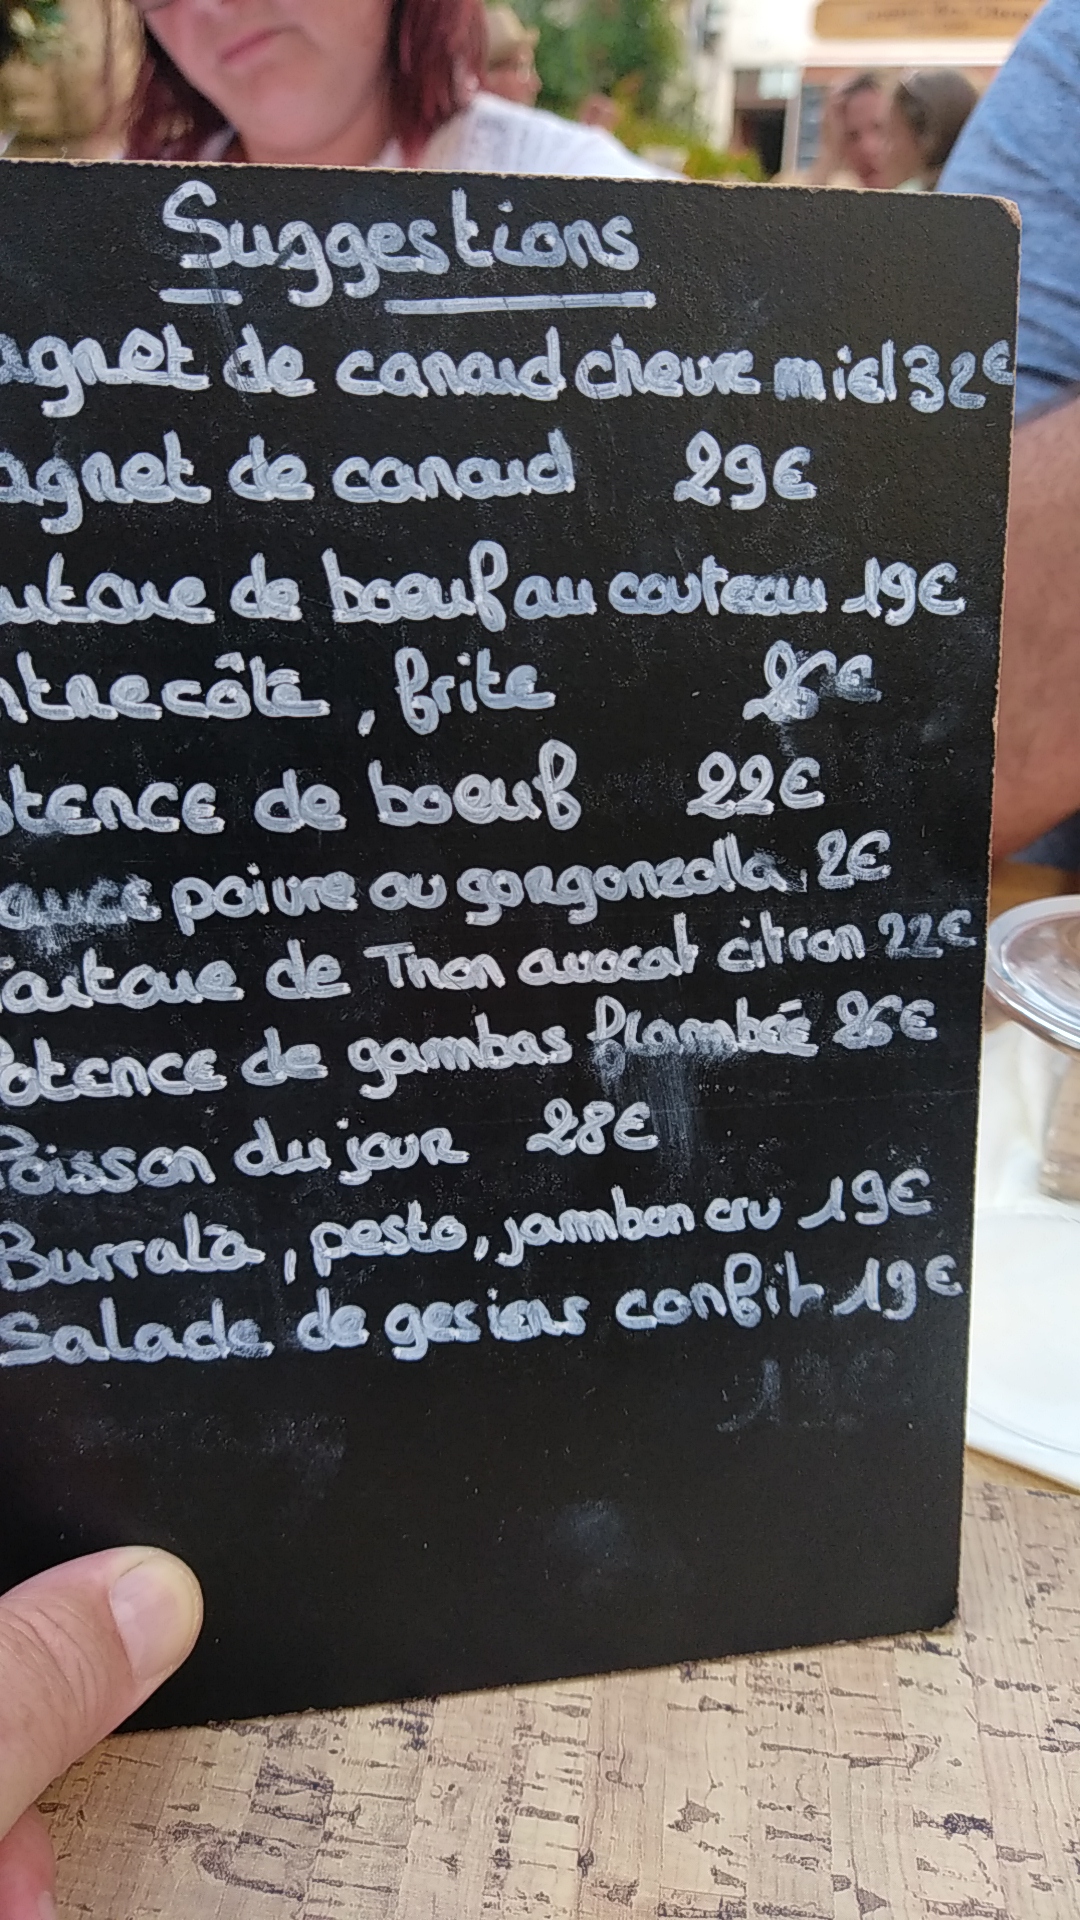 Suggestions
agnet de canard chevre miel 32€
agnet de canard 29€
utare de boeuf au couteau 19€
ntrecôte, frite
otence de boeuf 22€
auce poivre ou gorgonzolla 2€
Tartare de Thon avocat citron 22€
Potence de gambas flambée 26€
Poisson du jour 28€
Burrata, pesto, jambon cru 19€
Salade de gesiers confit 19€